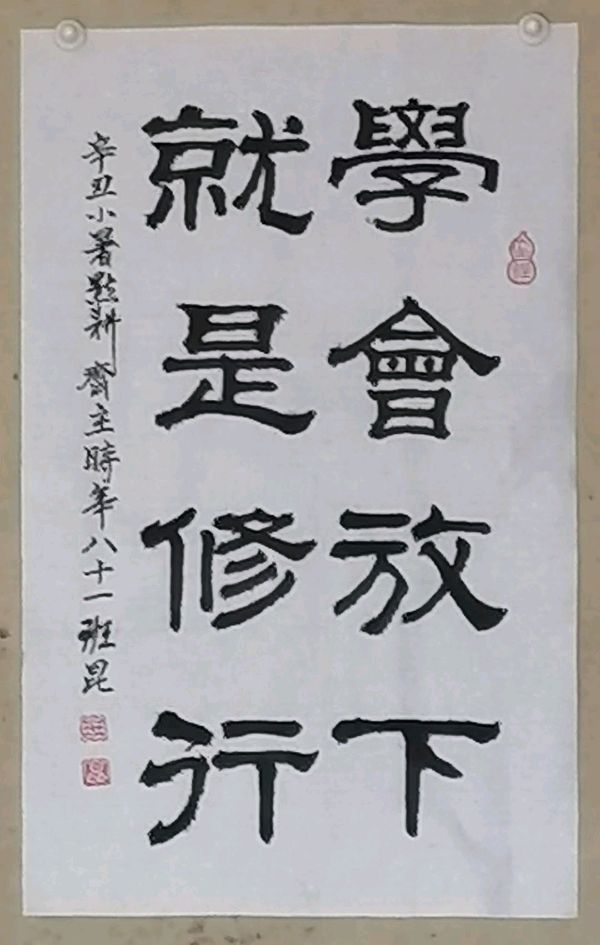 學會放下
就是修行
辛丑小暑點耕齋主時年八十一班昆